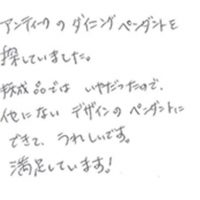 アンティークのダイニングペンダントを
探していました。
既成品ではいやだったので、
他にないデザインのペンダントに
できて、うれしいです。
満足しています!